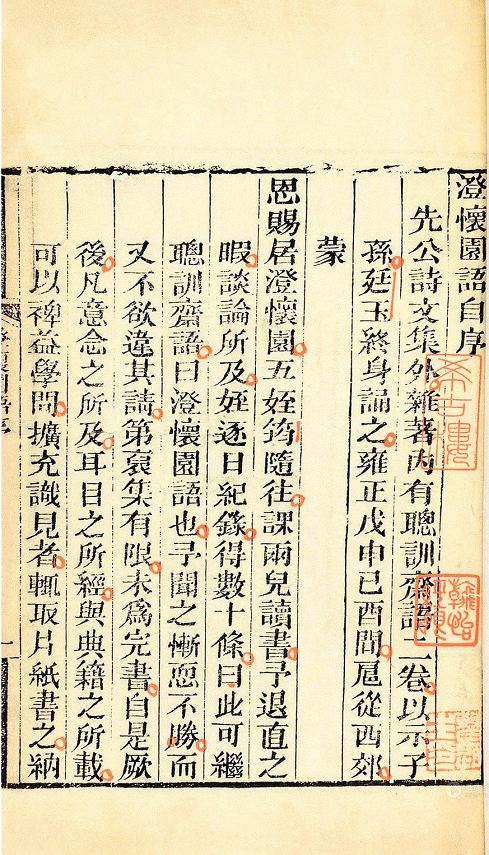 澄懷園語自序
先公詩文集外雜著內有聰訓齋語二卷以示子
孫廷玉終身誦之雍正戊申己酉間扈從西郊
蒙
恩賜居澄懷園五姪筠隨往課兩兒讀書予退直之
暇談論所及姪逐日紀錄得數十條曰此可繼
聰訓齋語曰澄懷園語也予聞之慚恧不勝而
又不欲違其請第裒集有限未為完書自是厥
後凡意念之所及耳目之所經與典籍之所載
可以裨益學問擴充識見者輒取片紙書之納